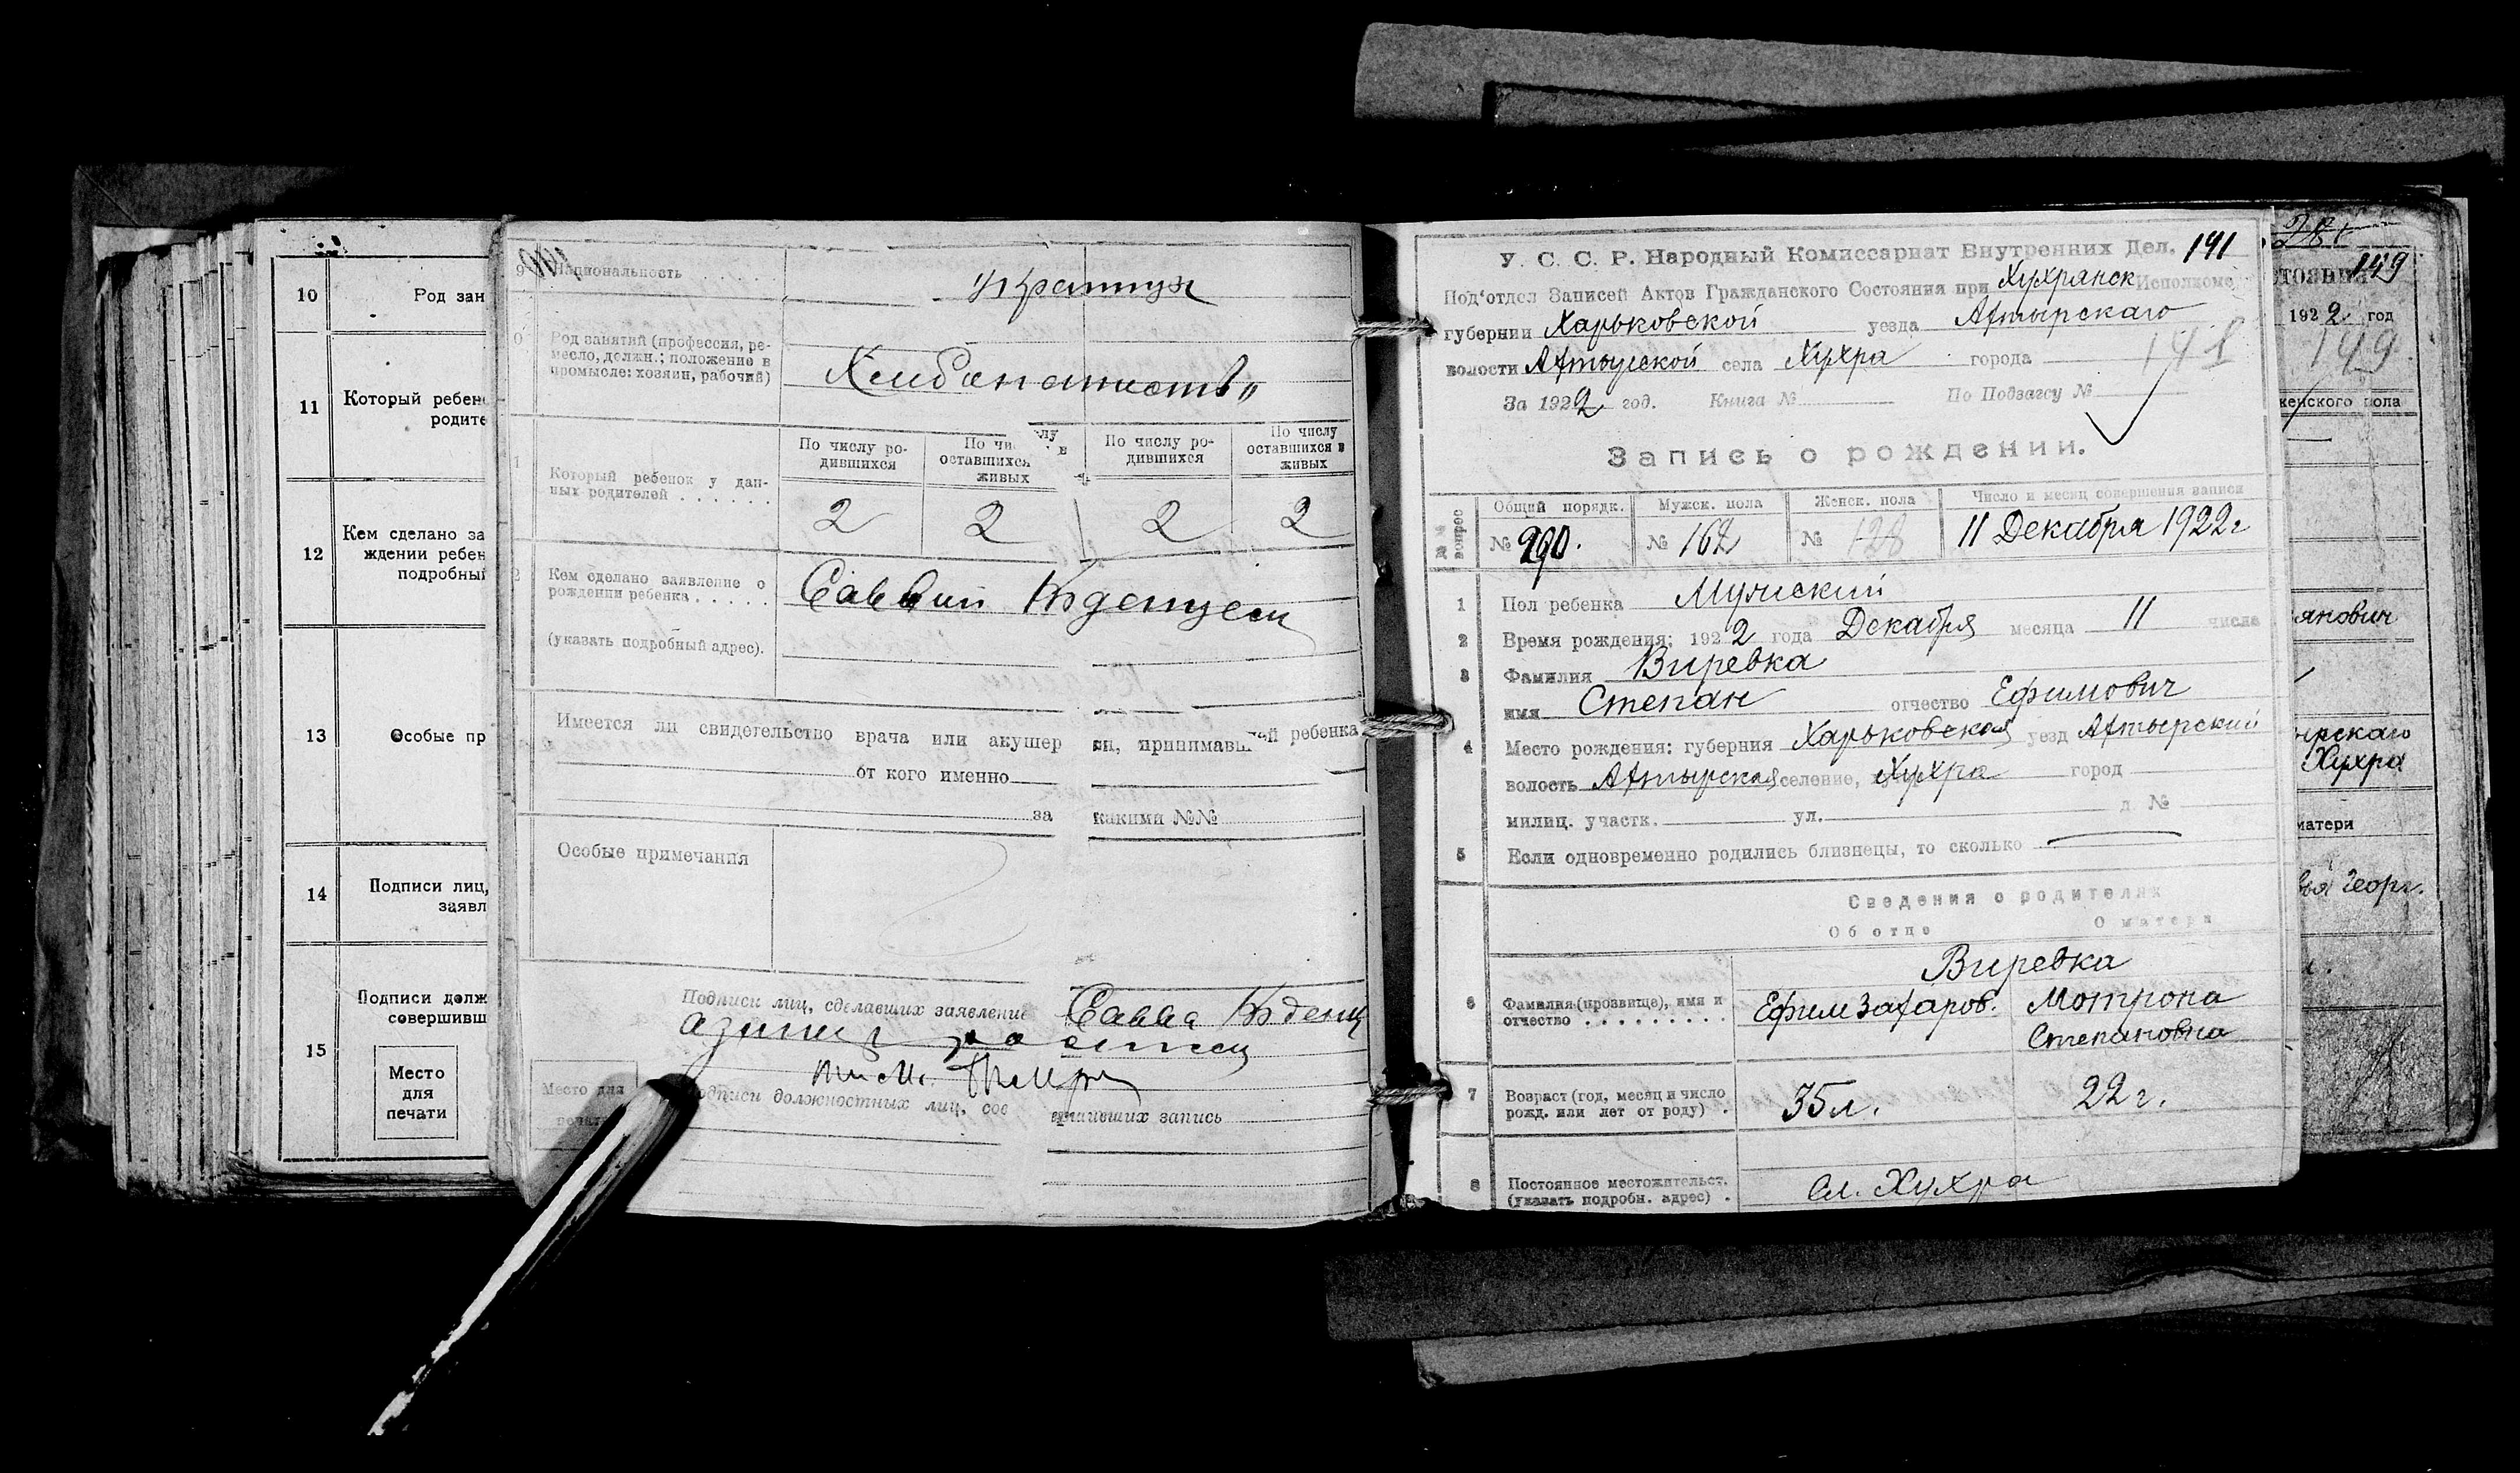 10
Род зан
11
Который ребен
родите
12
Кем сделано за
ждении ребен
подробный
13
Особые пр
14
Подписи лиц,
заявл
Подписи долж
совершивш
15
Место
для
печати
9
Национальность
Род занятий (профессия, ре-
месло, должн.; положение в
промысле: хозяин, рабочий)
По числу ро-
дившихся
оставшихся
живых
По числу ро-
дившихся
По числу
оставшихся в
живых
Который ребенок у дан-
ных родителей
2 2 2 2
Кем сделано заявление о
рождении ребенка
Саввий
(указать подробный адрес).
Имеется ли свидетельство врача или акушер ки, принимавшей ребенка
от кого именно
за какими №№
Особые примечания
Подписи лиц, сделавших заявление Савва
Место для
печати
Подписи должностных лиц, сове ршивших запись
У. С. С. Р. Народный Комиссариат Внутренних Дел. 141
Под'отдел Записей Актов Гражданского Состояния при Хухрянск Исполкоме
губернии Харьковской уезда Ахтырскаго
волости Ахтырской села Хухра города 141
За 1922 год. Книга № По Подзагсу №
Запись о рождении.
№№ вопрос
Общий порядк. Мужск. пола Женск. пола Число и месяц совершения записи
№ 290. № 162 № 128 11 Декабря 1922 г
1 Пол ребенка Мужский
2 Время рождения: 1922 года Декабря месяца 11 числа
3 Фамилия Виревка
имя Степан отчество Ефимович
4 Место рождения: губерния Харьковская уезд Ахтырский
волость Ахтырская селение, Хухра город
милиц. участк. ул. д №
5 Если одновременно родились близнецы, то сколько
Сведения о родителях
Об отце О матери
Виревка
6 Фамилия (прозвище), имя и
отчество
Ефим Захаров. Мотрона
Степановна
7 Возраст (год, месяц и число
рожд. или лет от роду)
35 л. 22 г.
8 Постоянное местожительст.
(указать подробн. адрес)
Сл. Хухра
149
1922 год
149
женского пола
янович
ырскаго
Хухра
матери
Георг.